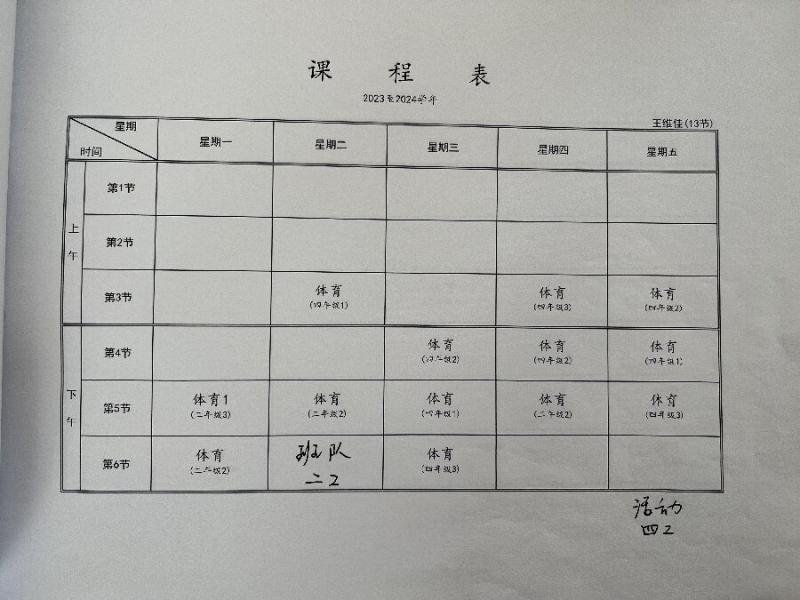 课 程 表
2023至2024学年
王维佳(13节)
星期 时间 星期一 星期二 星期三 星期四 星期五
上午
第1节
第2节
第3节 体育 体育 体育
(四年级1) (四年级3) (四年级2)
下午
第4节 体育 体育 体育
(四年级2) (四年级2) (四年级1)
第5节 体育1 体育 体育 体育 体育
(二年级3) (二年级2) (四年级1) (二年级2) (四年级3)
第6节 体育 班队 体育
(二年级2) 二2 (四年级3)
活动
四2